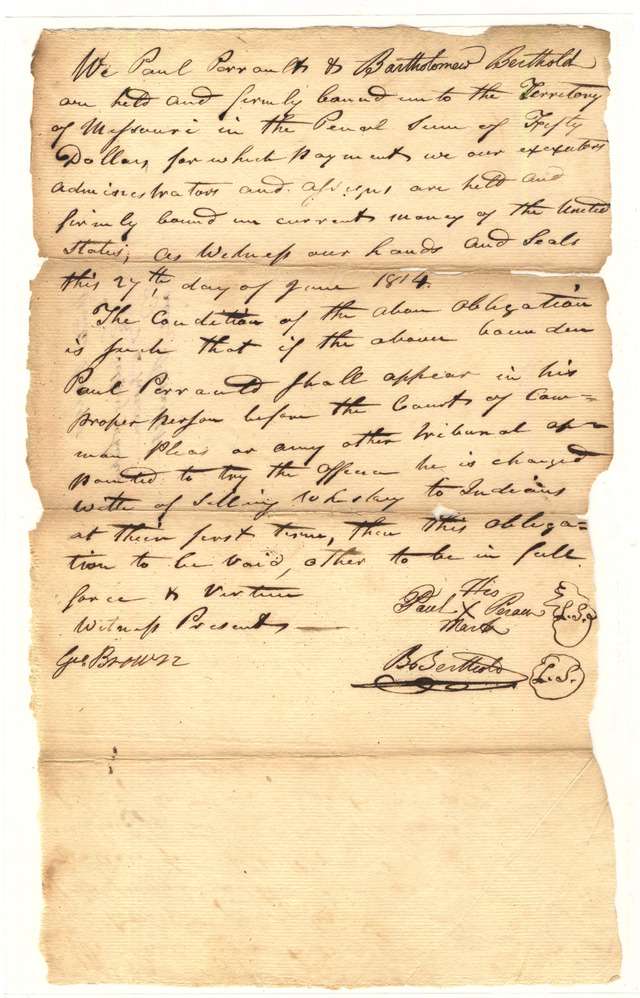 We Paul Perrault & Bartholomew Berthold
are held and firmly bound unto the Territory
of Missouri in the Penal Sum of Fifty
Dollars, for which payment we our executors
administrators and assigns are held and
firmly bound in current money of the United
States, as Witness our hands and Seals
this 27th day of June 1814
The Condition of the above obligation
is such that if the above bounden
Paul Perrauld shall appear in his
proper person before the Court of Com=
mon Pleas or any other tribunal ap=
pointed to try the offence he is charged
with of Selling Whiskey to Indians
at their first term, then this obliga=
tion to be void, other to be in full
force & Virtue
Witness Present
His
Paul X Perau L.S.
Mark
Jos Brown
B Berthold L.S.